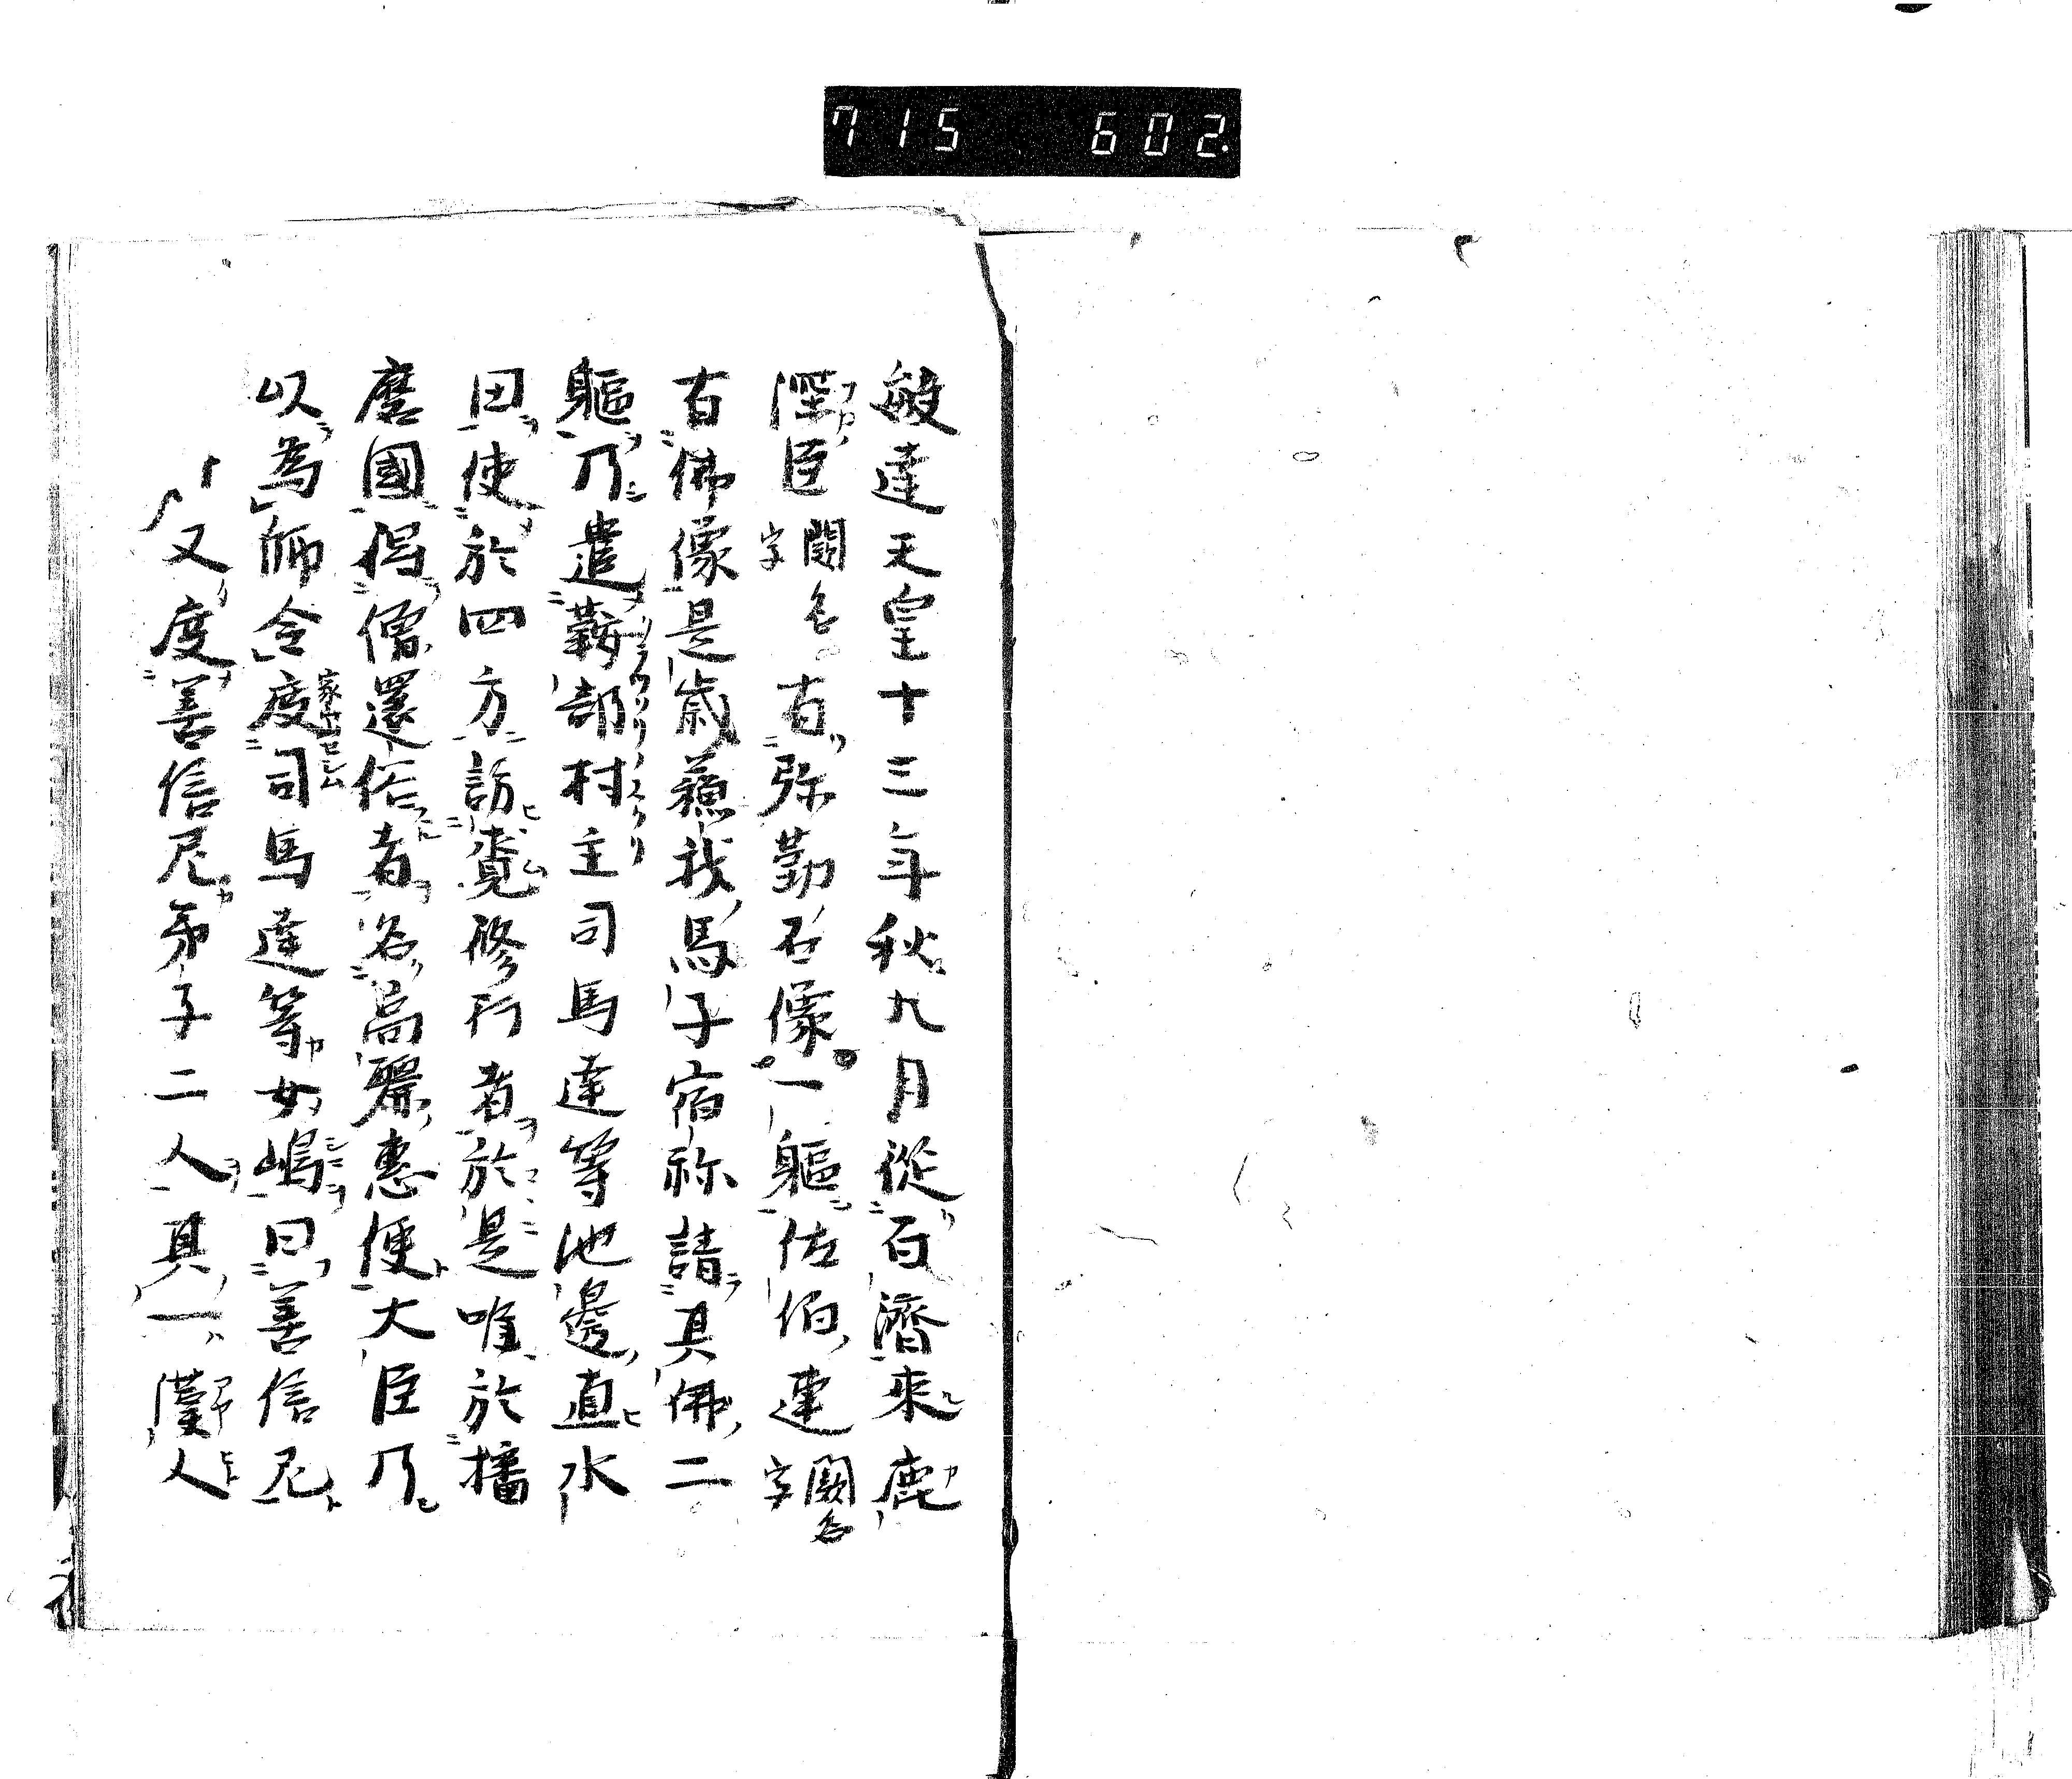 715 602.
敏達天皇十三年秋九月從百濟來鹿
深臣闕名字有弥勒石像一軀佐伯連闕名字
有佛像是歳蘓我馬子宿祢請其佛二
軀乃遣鞍部村主司馬達等池邊直氷
田使於四方訪覓修行者於是唯於播
磨國得僧還俗者名高麗惠便大臣乃
以為師令度司馬達等女嶋曰善信尼
又度善信尼弟子二人其一漢人